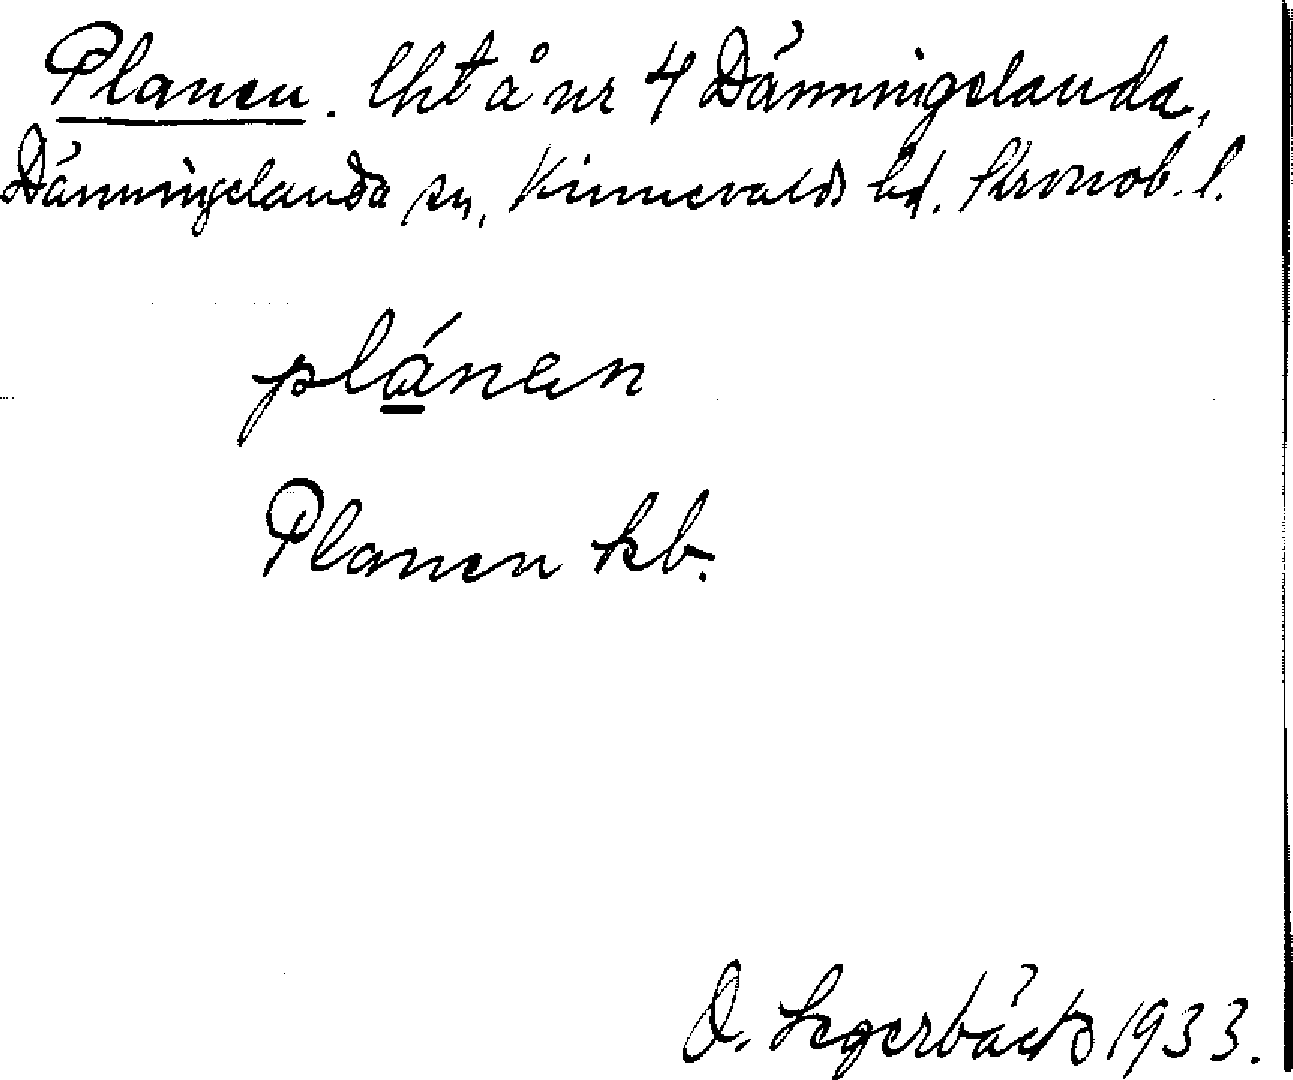 Planen. lht å nr 4 Dänningelanda,
Dänningelanda sn, Kinnevalds hd. Kronob. l.
plánan
Planen kb.
D. Segerbäck 1933.